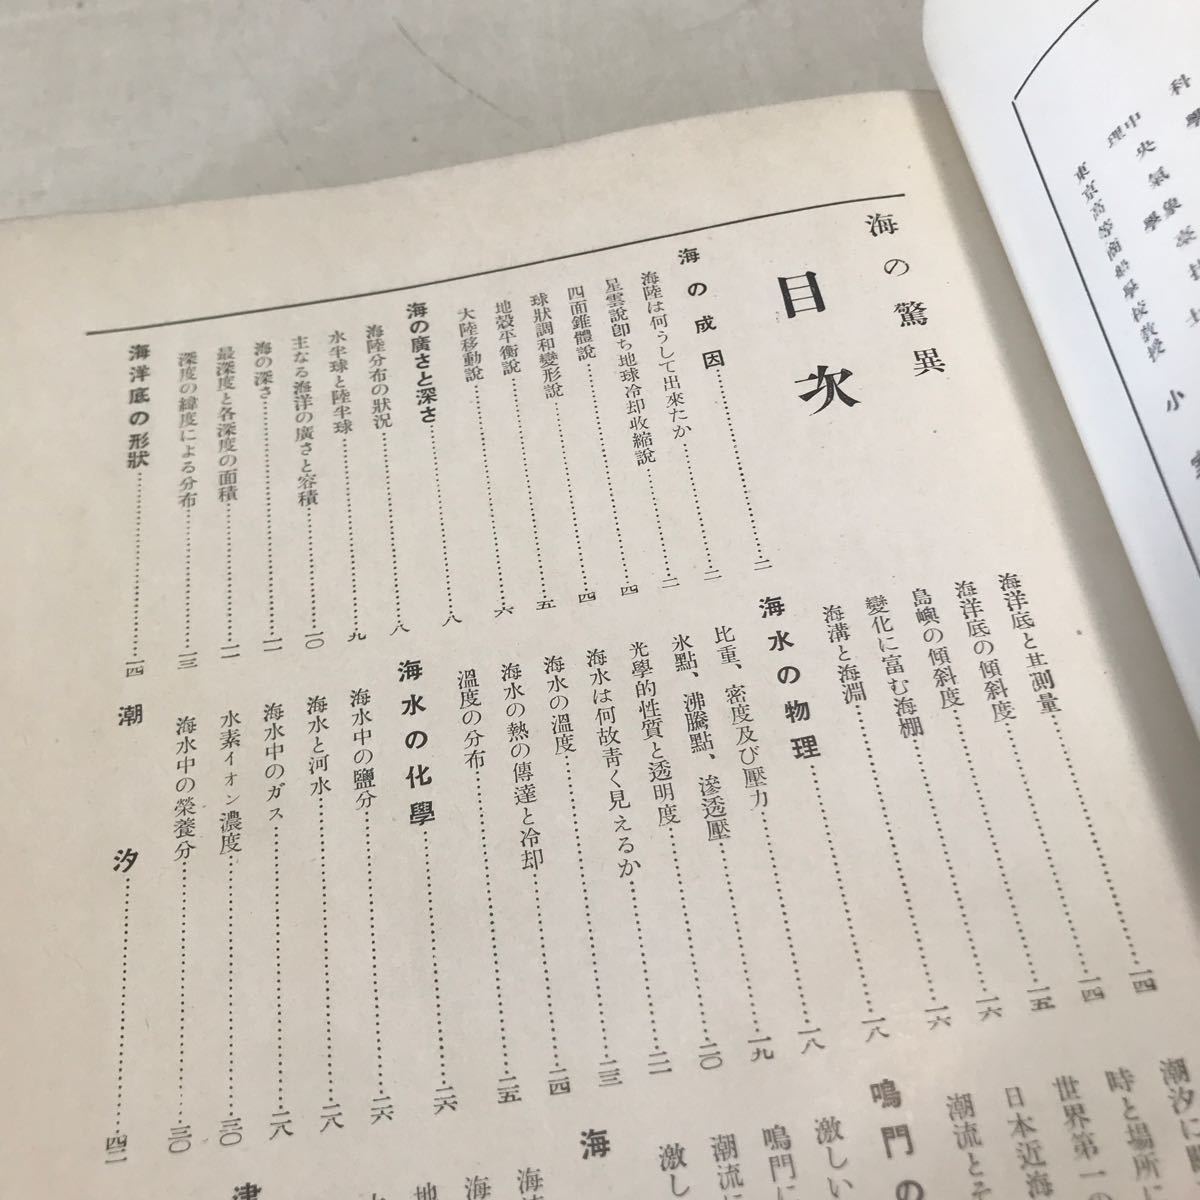 科學
中央氣象臺技
理學士
東京高等商船學校教授
小
海の驚異
目次
海の成因……二
海陸は何うして出來たか……二
星雲說卽ち地球冷却收縮說……二
四面錐體說……四
球狀調和變形說……四
地殼平衡說……五
大陸移動說……六
海の廣さと深さ……八
海陸分布の狀況……八
水半球と陸半球……九
主なる海洋の廣さと容積……一〇
海の深さ……一一
最深度と各深度の面積……一一
深度の緯度による分布……一三
海洋底の形狀……一四
海洋底と其測量……一四
海洋底の傾斜度……一四
島嶼の傾斜度……一五
變化に富む海棚……一六
海溝と海淵……一六
海水の物理……一八
比重、密度及び壓力……一八
氷點、沸騰點、滲透壓……一九
光學的性質と透明度……二〇
海水は何故靑く見えるか……二一
海水の溫度……二三
海水の熱の傳達と冷却……二四
溫度の分布……二五
海水の化學……二六
海水中の鹽分……二六
海水と河水……二八
海水中のガス……二八
水素イオン濃度……三〇
海水中の榮養分……三〇
潮汐……四二
潮汐に
時と場所に
世界第一
日本近海
潮流とそ
鳴門の
激しい
鳴門に
潮流に
激し
海
海
海
地
津